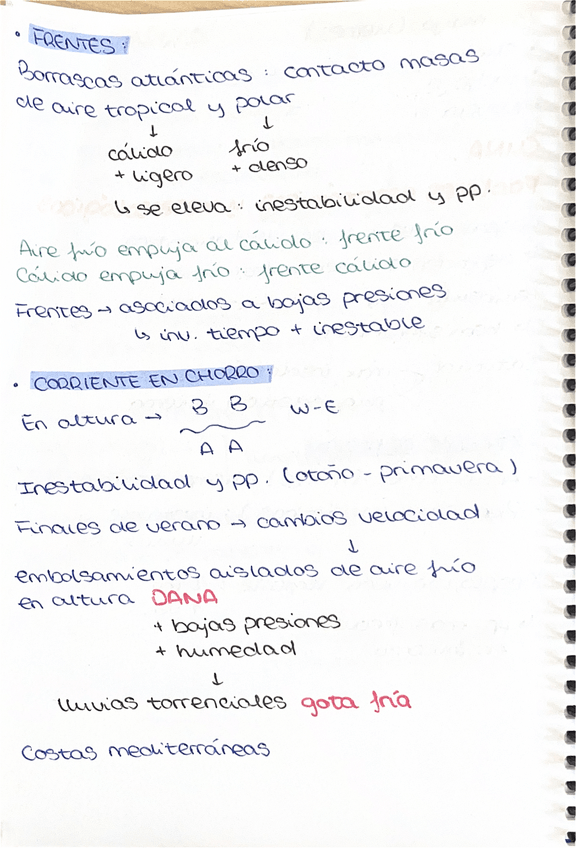 • FRENTES:
Borrascas atlánticas: contacto masas
de aire tropical y polar
↓ ↓
cálido frío
+ ligero + denso
↳ se eleva: inestabilidad y pp.
Aire frío empuja al cálido: frente frío
Cálido empuja frío: frente cálido
Frentes → asociados a bajas presiones
↳ inv. tiempo + inestable
• CORRIENTE EN CHORRO:
En altura → B B W-E
A A
Inestabilidad y pp. (otoño - primavera)
Finales de verano → cambios velocidad
↓
embolsamientos aislados de aire frío
en altura DANA
+ bajas presiones
+ humedad
↓
lluvias torrenciales gota fría
Costas mediterráneas